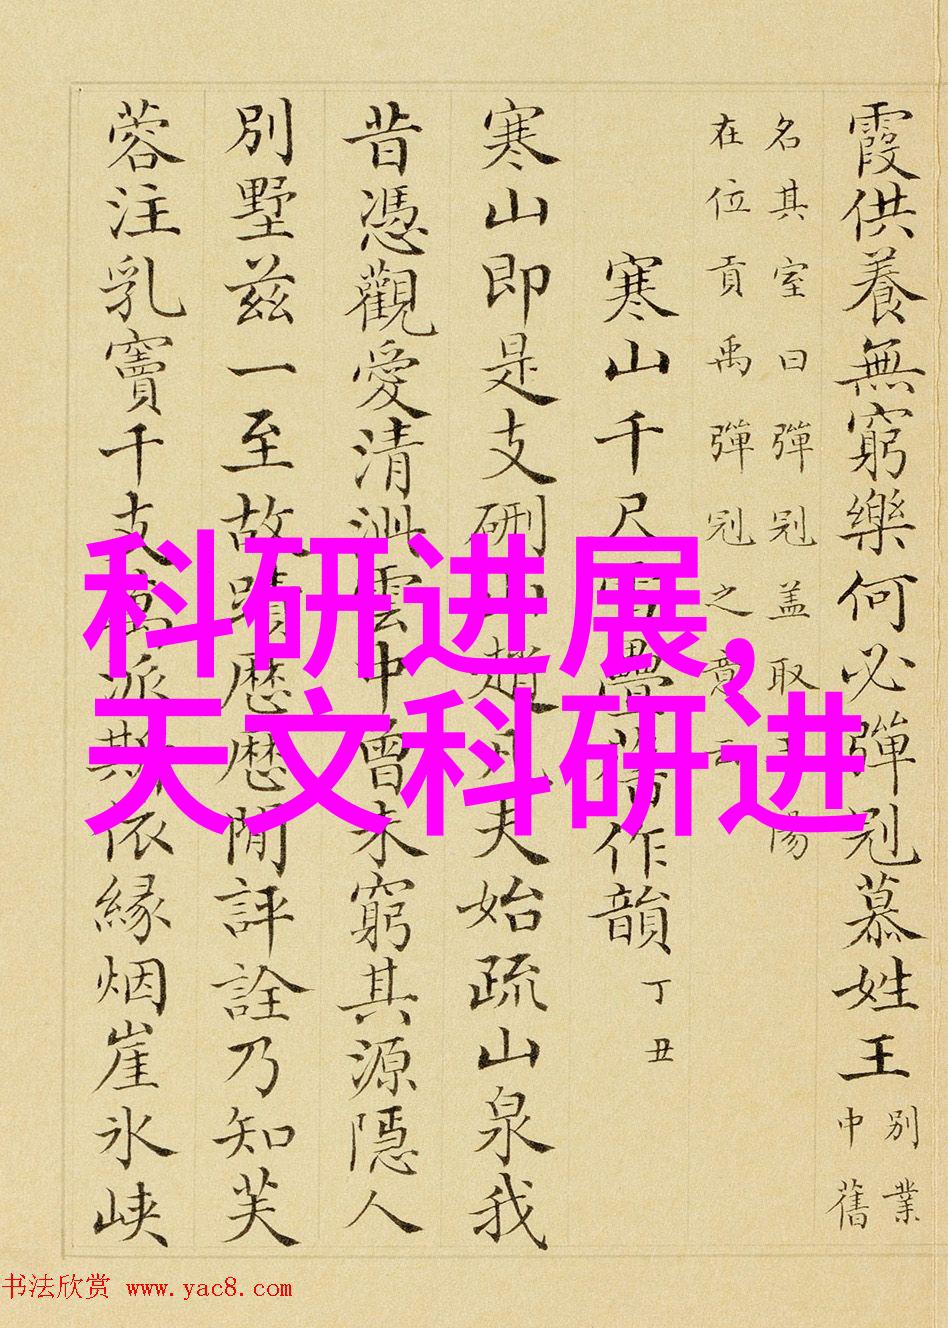 霞供養無窮樂何必彈冠慕姓王別業
中舊
名其室曰彈冠蓋取
陽
在位貢禹彈冠之意
寒山千尺雪疊昔作韻丁丑
寒山即是支硎
趙
夫始疏山泉我
昔憑觀愛清泚雲中曾未窮其源隱人
別墅茲一至故蹟歷歷閒評詮乃知芙
蓉注乳竇千支
派斯依緣烟崖氷峽
科研进展,
天文科研进
书法欣赏 www.yac8.com